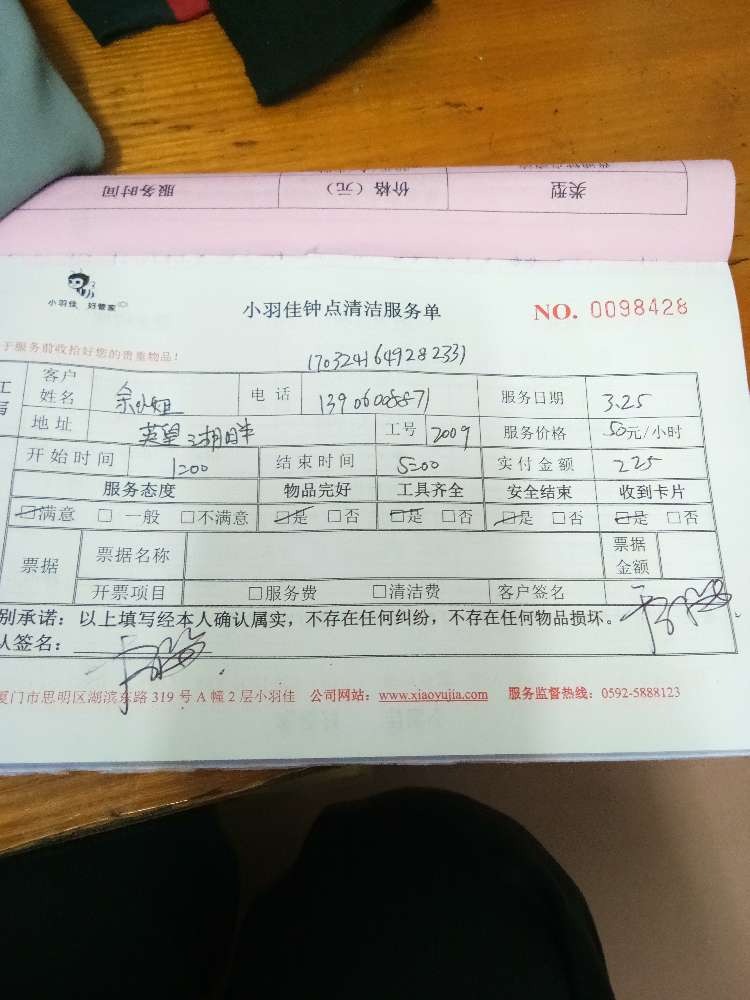 服务时间 价格（元） 类型
小羽佳 好管家
小羽佳钟点清洁服务单 NO. 0098428
于服务前收拾好您的贵重物品！
客户姓名 余小姐 电话 13906008871 服务日期 3.25
地址 工号 2009 服务价格 50元/小时
开始时间 1:00 结束时间 5:00 实付金额 225
服务态度 物品完好 工具齐全 安全结束 收到卡片
☑满意 □一般 □不满意 ☑是 □否 ☑是 □否 ☑是 □否 ☑是 □否
票据 票据名称 票据金额
开票项目 □服务费 □清洁费 客户签名
别承诺：以上填写经本人确认属实，不存在任何纠纷，不存在任何物品损坏。
人签名：
厦门市思明区湖滨东路 319 号 A 幢 2 层小羽佳 公司网站：www.xiaoyujia.com 服务监督热线：0592-5888123